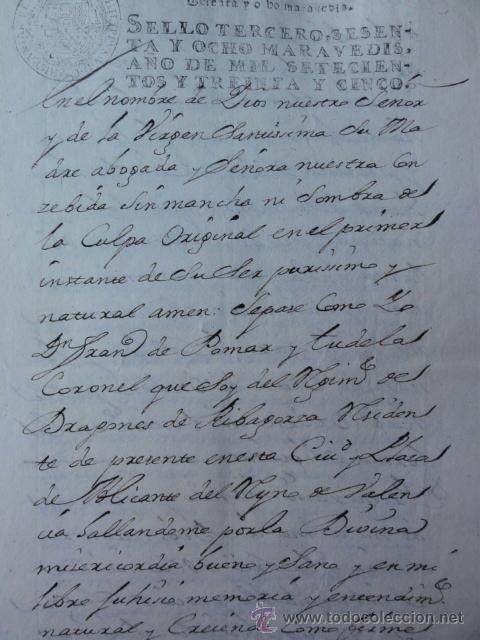 sesenta y o ho maravedis.
SELLO TERCERO, SESEN-
TA Y OCHO MARAVEDIS,
AÑO DE MIL SETECIEN-
TOS Y TREINTA Y CINCO.
En el nombre de Dios nuestro Señor
y de la Virgen Santissima Su Ma
dre abogada y Señora nuestra Con
zebida Sin mancha ni Sombra de
la Culpa Original en el primer
instante de Su Ser purissimo y
natural amen: Sepase Como Yo
Dn Franco de Pomar y tudela
Coronel que Soy del Regimto de
Dragones de Ribagorza Residen
te de presente en esta Ciud y Plaza
de Alicante del Reyno de Valen
cia hallandome por la Divina
misericordia bueno y Sano y en mi
libre Juhisio memoria y entendimto
natural y Creiendo Como firme
todocoleccion
www.todocoleccion.net